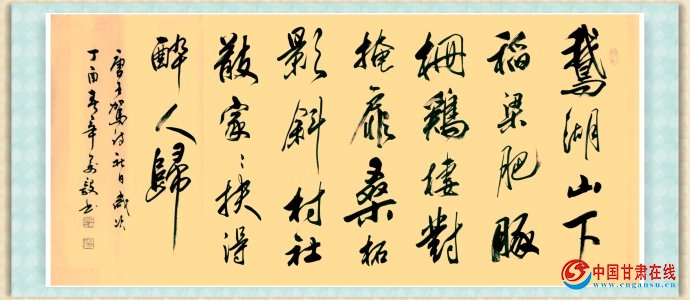 鵞湖山下
稻梁肥豚
柵鷄棲對
掩扉桑柘
影斜村社
散家〻扶得
醉人歸
唐王駕詩社日歲次
丁酉春書
中国甘肃在线
www.cngansu.cn